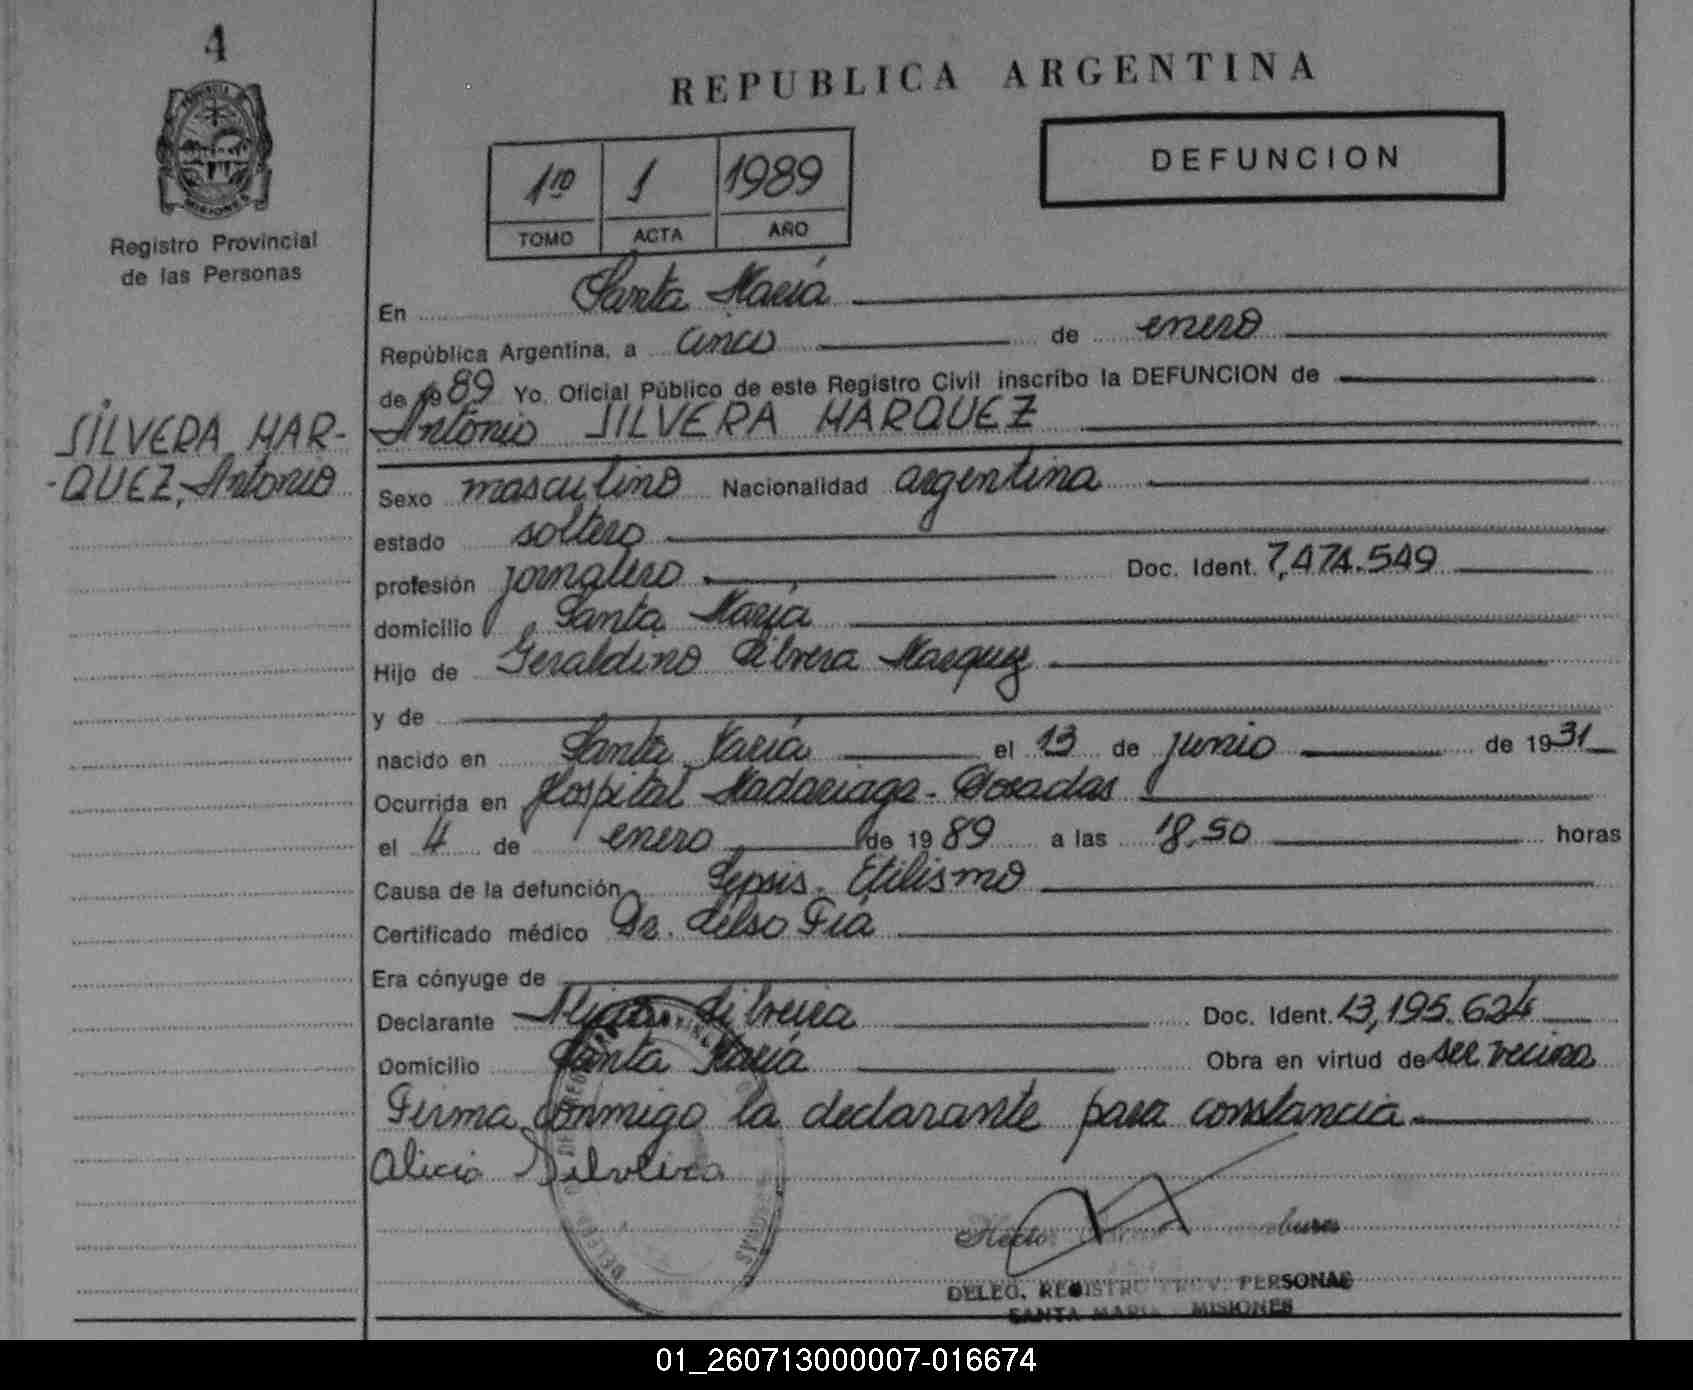 4
REPUBLICA ARGENTINA
DEFUNCION
1ro 1 1989
TOMO ACTA AÑO
PROVINCIA
MISIONES
Registro Provincial
de las Personas
En Santa María
República Argentina, a cinco de enero
de 1989 Yo, Oficial Público de este Registro Civil inscribo la DEFUNCION de
SILVERA MAR-
-QUEZ, Antonio
Antonio SILVERA MARQUEZ
Sexo masculino Nacionalidad argentina
estado soltero
profesión jornalero Doc. Ident. 7,474.549
domicilio Santa María
Hijo de Geraldino Silvera Marquez
y de
nacido en Santa María el 13 de junio de 1931
Ocurrida en Hospital Madariaga - Posadas
el 4 de enero de 1989 a las 18,50 horas
Causa de la defunción Sepsis. Etilismo
Certificado médico Dr. Celso Fiá
Era cónyuge de
Declarante Alicia Silveira Doc. Ident. 13,195.624
Domicilio Santa María Obra en virtud de ser vecina
Firma conmigo la declarante para constancia
Alicia Silveira
Hector
DELEG. REGISTRO PROV. PERSONAS
SANTA MARIA - MISIONES
01_260713000007-016674